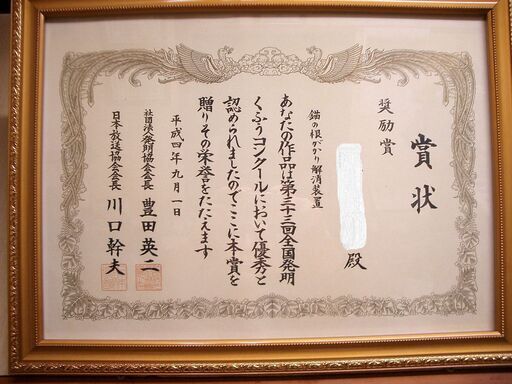 賞状
奨励賞
殿
錨の根がかり解消装置
あなたの作品は第三十三回全国発明
くふうコンクールにおいて優秀と
認められましたのでここに本賞を
贈りその栄誉をたたえます
平成四年九月一日
社団法人発明協会会長 豊田英二
日本放送協会会長 川口幹夫